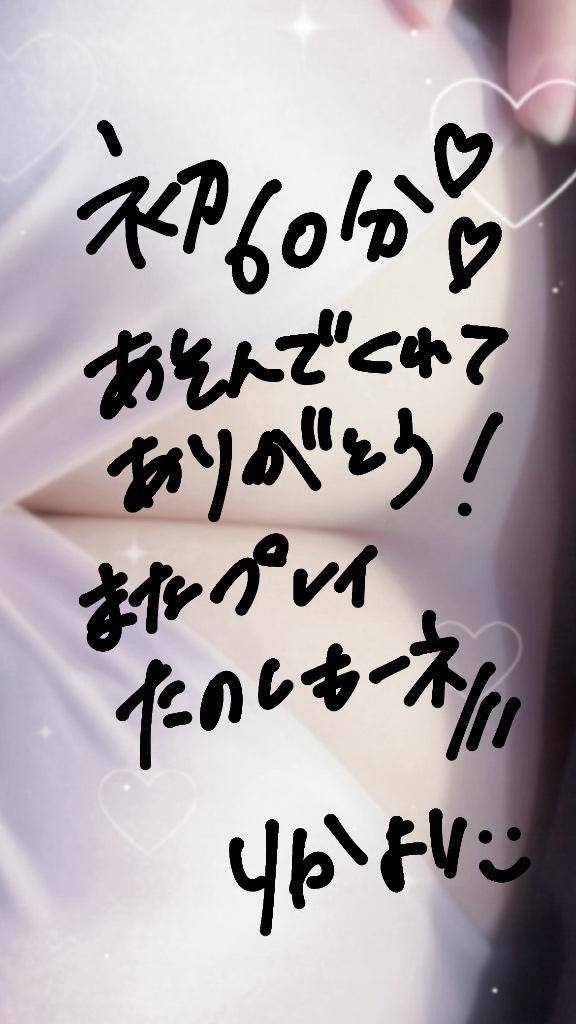 初60分♡♡
あそんでくれて
ありがとう!
またプレイ
たのしもーネ///
りかより